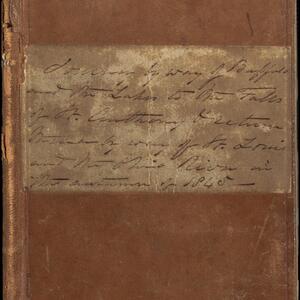 Journey by way of Buffalo
and the Lakes to the Falls
of St. Anthony &
by way of St. Louis
and the Ohio River in
the autumn of 1845 —